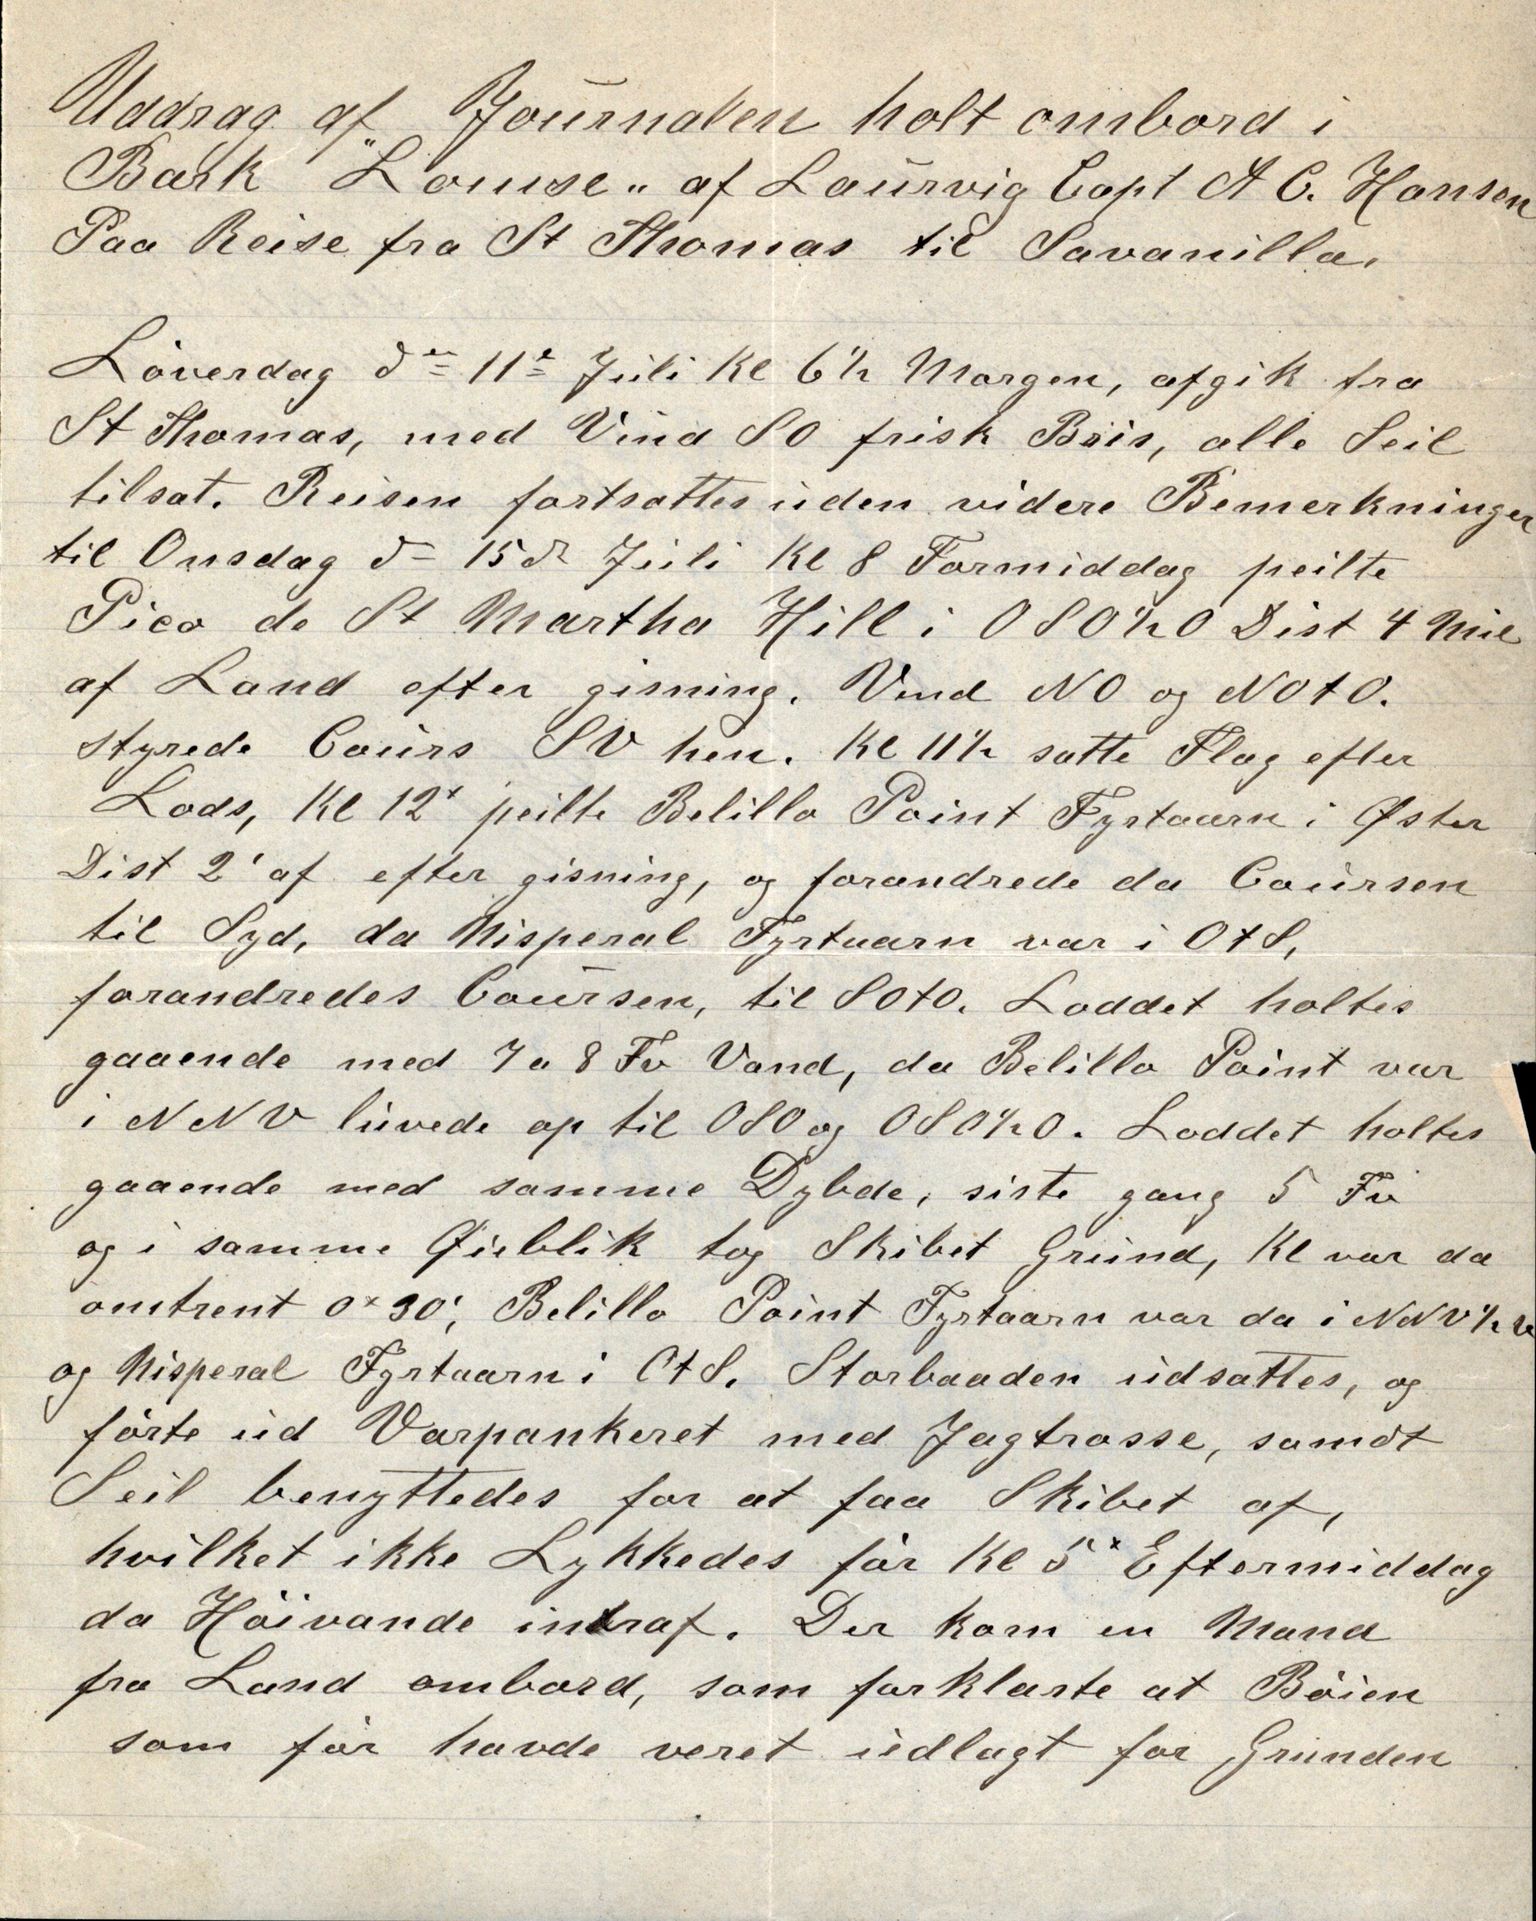 Uddrag af Journalen holt ombord i
Bark "Louise" af Laurvig Capt A C. Hansen
Paa Reise fra St Thomas til Savanilla.
Löverdag dn 11e Juli Kl 6½ Morgen, afgik fra
St Thomas, med Vind SO frisk Bris, alle Seil
tilsat. Reisen fortsattes uden videre Bemerkninger
til Onsdag d 15de Juli Kl 8 Formiddag peilte
Pico de St Martha Hill i OSO½O Dist 4 Mil
af Land efter gisning. Vind NO og NOtO.
styrede Cours SV hen. Kl 11½ satte Flag efter
Lods, Kl 12x peilte Belillo Point Fyrtaarn i Øster
Dist 2' af efter gisning, og forandrede da Coursen
til Syd, da Nisperal Fyrtaarn var i OtS,
forandredes Coursen, til SOtO. Loddet holtes
gaaende med 7 a 8 Fv Vand, da Belillo Point var
i NNV luvede op til OSO og OSO½O. Loddet holtes
gaaende med samme Dybde, siste gang 5 Fv
og i samme Øieblik tog Skibet Grund, Kl var da
omtrent 0x30', Belillo Point Fyrtaarn var da i NNV½V
og Nisperal Fyrtaarn i OtS. Storbaaden udsattes, og
førte ud Varpankeret med Jagtrosse, samdt
Seil benyttedes for at faa Skibet af,
hvilket ikke Lykkedes för Kl 5x Eftermiddag
da Höivande intraf. Der kom en Mand
fra Land ombord, som forklarte at Böien
som för havde veret udlagt for Grunden